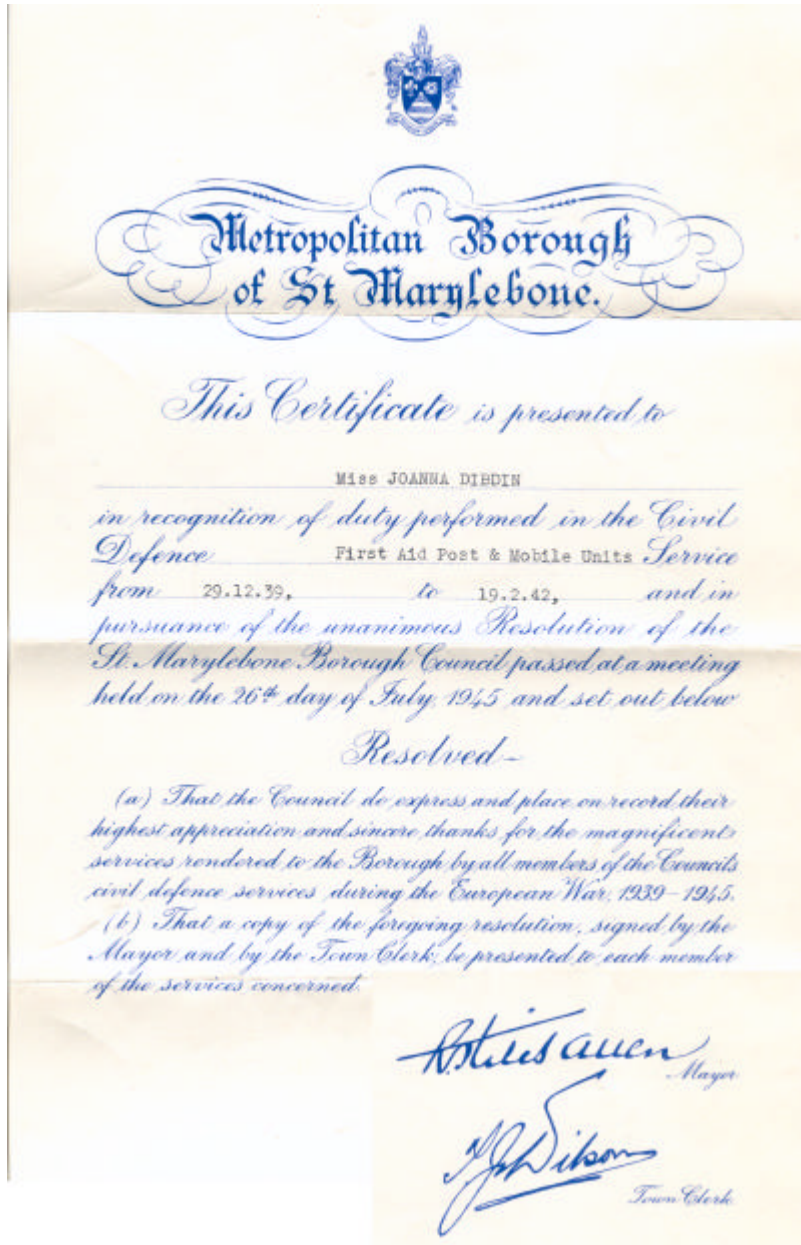 Metropolitan Borough
of St Marylebone.
This Certificate is presented to
Miss JOANNA DIBDIN
in recognition of duty performed in the Civil
Defence First Aid Post & Mobile Units Service
from 29.12.39, to 19.2.42, and in
pursuance of the unanimous Resolution of the
St. Marylebone Borough Council passed at a meeting
held on the 26th day of July, 1945 and set out below
Resolved-
(a) That the Council do express and place on record their
highest appreciation and sincere thanks for the magnificent
services rendered to the Borough by all members of the Councils
civil defence services during the European War, 1939-1945.
(b) That a copy of the foregoing resolution, signed by the
Mayor and by the Town Clerk, be presented to each member
of the services concerned.
Allen
Mayor
Town Clerk